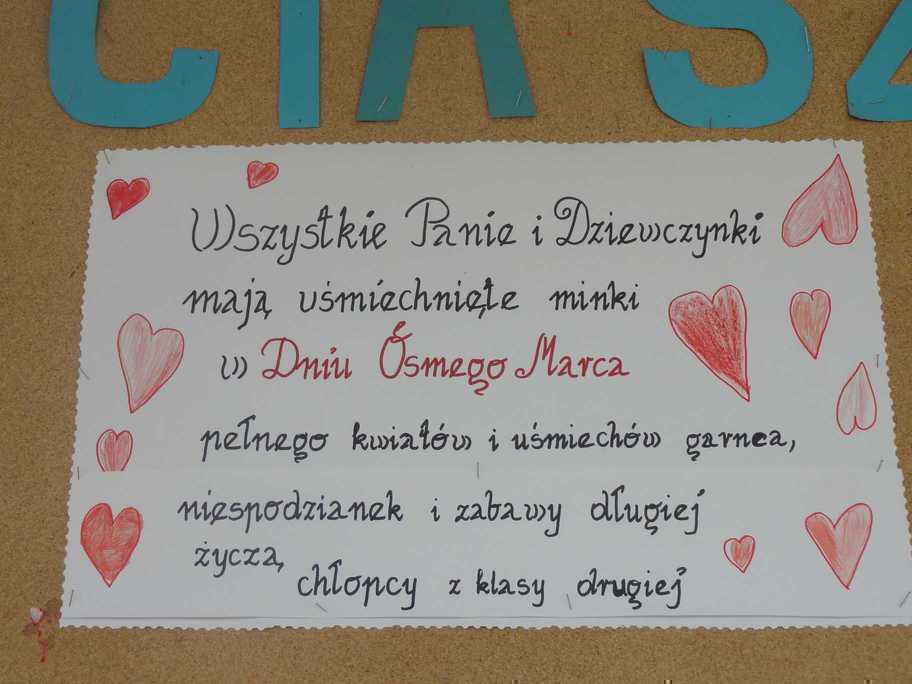 CIASZ
Wszystkie Panie i Dziewczynki
mają uśmiechnięte minki
w Dniu Ósmego Marca
pełnego kwiatów i uśmiechów garnca,
niespodzianek i zabawy długiej
życzą
chłopcy z klasy drugiej